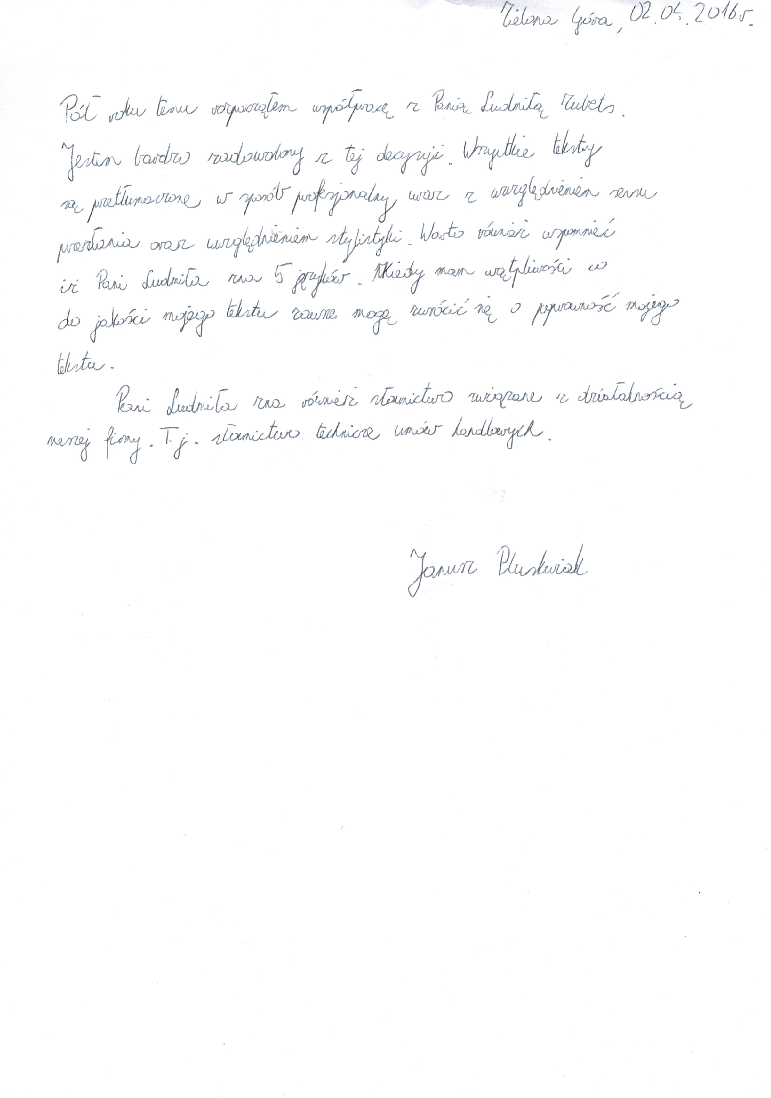 Zielona Góra, 02.04.2016r.
Pół roku temu rozpocząłem współpracę z Panią Ludmiłą Zubets.
Jestem bardzo zadowolony z tej decyzji. Wszystkie teksty
są przetłumaczone w sposób profesjonalny wraz z uwzględnieniem sensu
przesłania oraz uwzględnieniem stylistyki. Warto również wspomnieć
iż Pani Ludmiła zna 5 języków. Kiedy mam wątpliwości co
do jakości mojego tekstu zawsze mogę zwrócić się o poprawność mojego
tekstu.
Pani Ludmiła zna również słownictwo związane z działalnością
naszej firmy. T.j. słownictwo technicze umów handlowych.
Janusz Pluskwiak